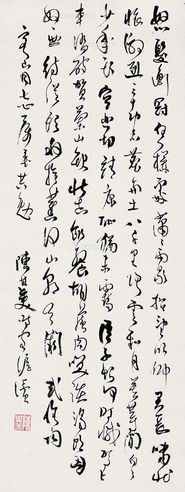 怒髮衝冠憑欄處瀟瀟雨歇抬望眼仰天長嘯壯
懷激烈三十功名塵與土八千里路雲和月莫等閒白了
少年頭空悲切靖康恥猶未雪臣子恨何時滅駕長
車踏破賀蘭山缺壯志飢餐胡虜肉笑談渴飲匈
奴血待從頭收拾舊山河朝天闕 武穆詞
山同志屬書共勉
陳